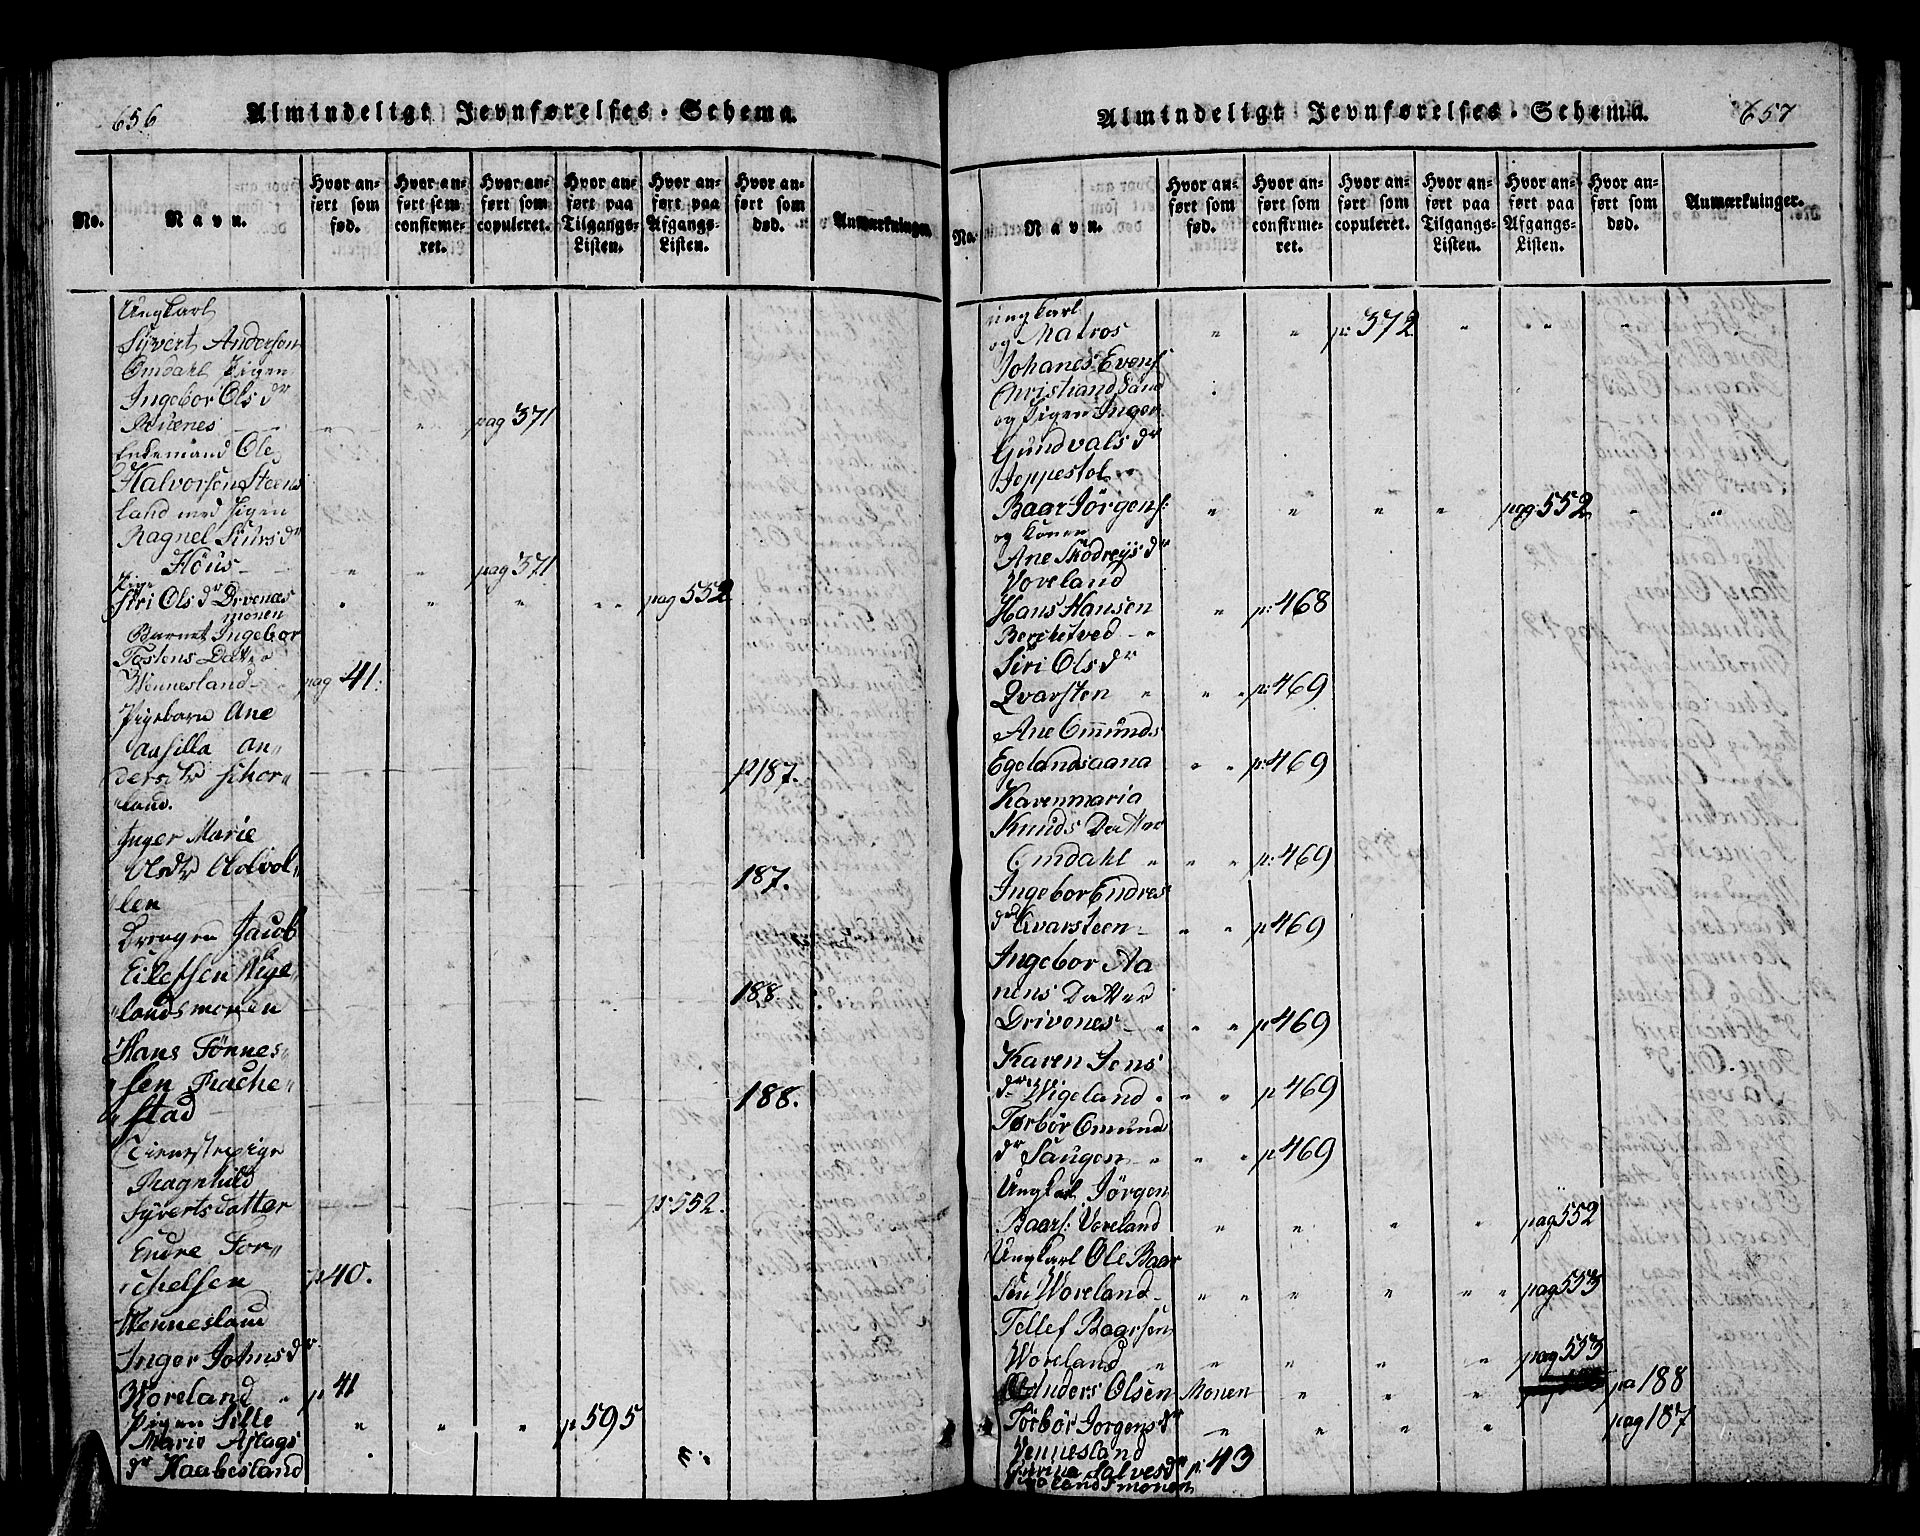 656
Almindeligt Jevnførelses-Schema.
No.
Navn.
Hvor anført som fød.
Hvor anført som confirmeret.
Hvor anført som copuleret.
Hvor anført paa Tilgangs-Listen.
Hvor anført paa Afgangs-Listen.
Hvor anført som død.
Anmærkninger.
Ungkarl
Syvert Andersen
Omdahl Pigen
Ingebor Ols dr
pag 371
Enkemand Ole
Halvorsen Steens
land med Pigen
Ragnel
Høüs pag 371
Pige
Siri Ols dr Drvenæs
monen pag 552
Barnet Ingebor
Tostens Datter
Wennesland pag 41.
Pigebarn Ane
Aasilla An„
dersdtr p187.
land.
Inger Marie
Olsdtr 187.
len
Drengen Jacob
Eilefsen Vige„
landsmonen 188.
Hans Tönnes„
sen Rache„
stad 188.
Tienestepige
Ragnhild
Syvertsdatter p.552.
Endre Tor„
chelsen p40.
Wennesland
Inger Johns dr
Woreland p41
Pigen Sille
Marie Aslags p595
dr Haabesland
657
Almindeligt Jevnførelses-Schema.
No.
Navn.
Hvor anført som fød.
Hvor anført som confirmeret.
Hvor anført som copuleret.
Hvor anført paa Tilgangs-Listen.
Hvor anført paa Afgangs-Listen.
Hvor anført som død.
Anmærkninger.
Ungkarl
og Matros p: 372
Johanes Evens
Christiand Sand
og Pigen Inger
Gundvals dr
Jeppestol
Baar Jörgens: pag 552
og Konen
Ane
Voreland
Hans Hansen p: 468
Siri Ols dr
Qvarsten p: 469
Ane Omunds
Egelandsaana p: 469
Karenmaria
Knuds Datter
Omdahl p: 469
Ingebor Endres
dr Qvarsteen p469
Ingebor Aa
nens Datter
Drivenes p469
Karen Jens
dr Wigeland p469
Torbör Omund
dr Saugen p469
Ungkarl Jörgen
Baars: Voreland pag 552
Ungkarl Ole Baar
sen Woreland pag 553
Tellef Baarsen
Woreland pag 553
Anders Olsen Monen pa 188
Torbör Jorgens dr pag 187
Vennesland
Salves dr p. 43
landsmonen